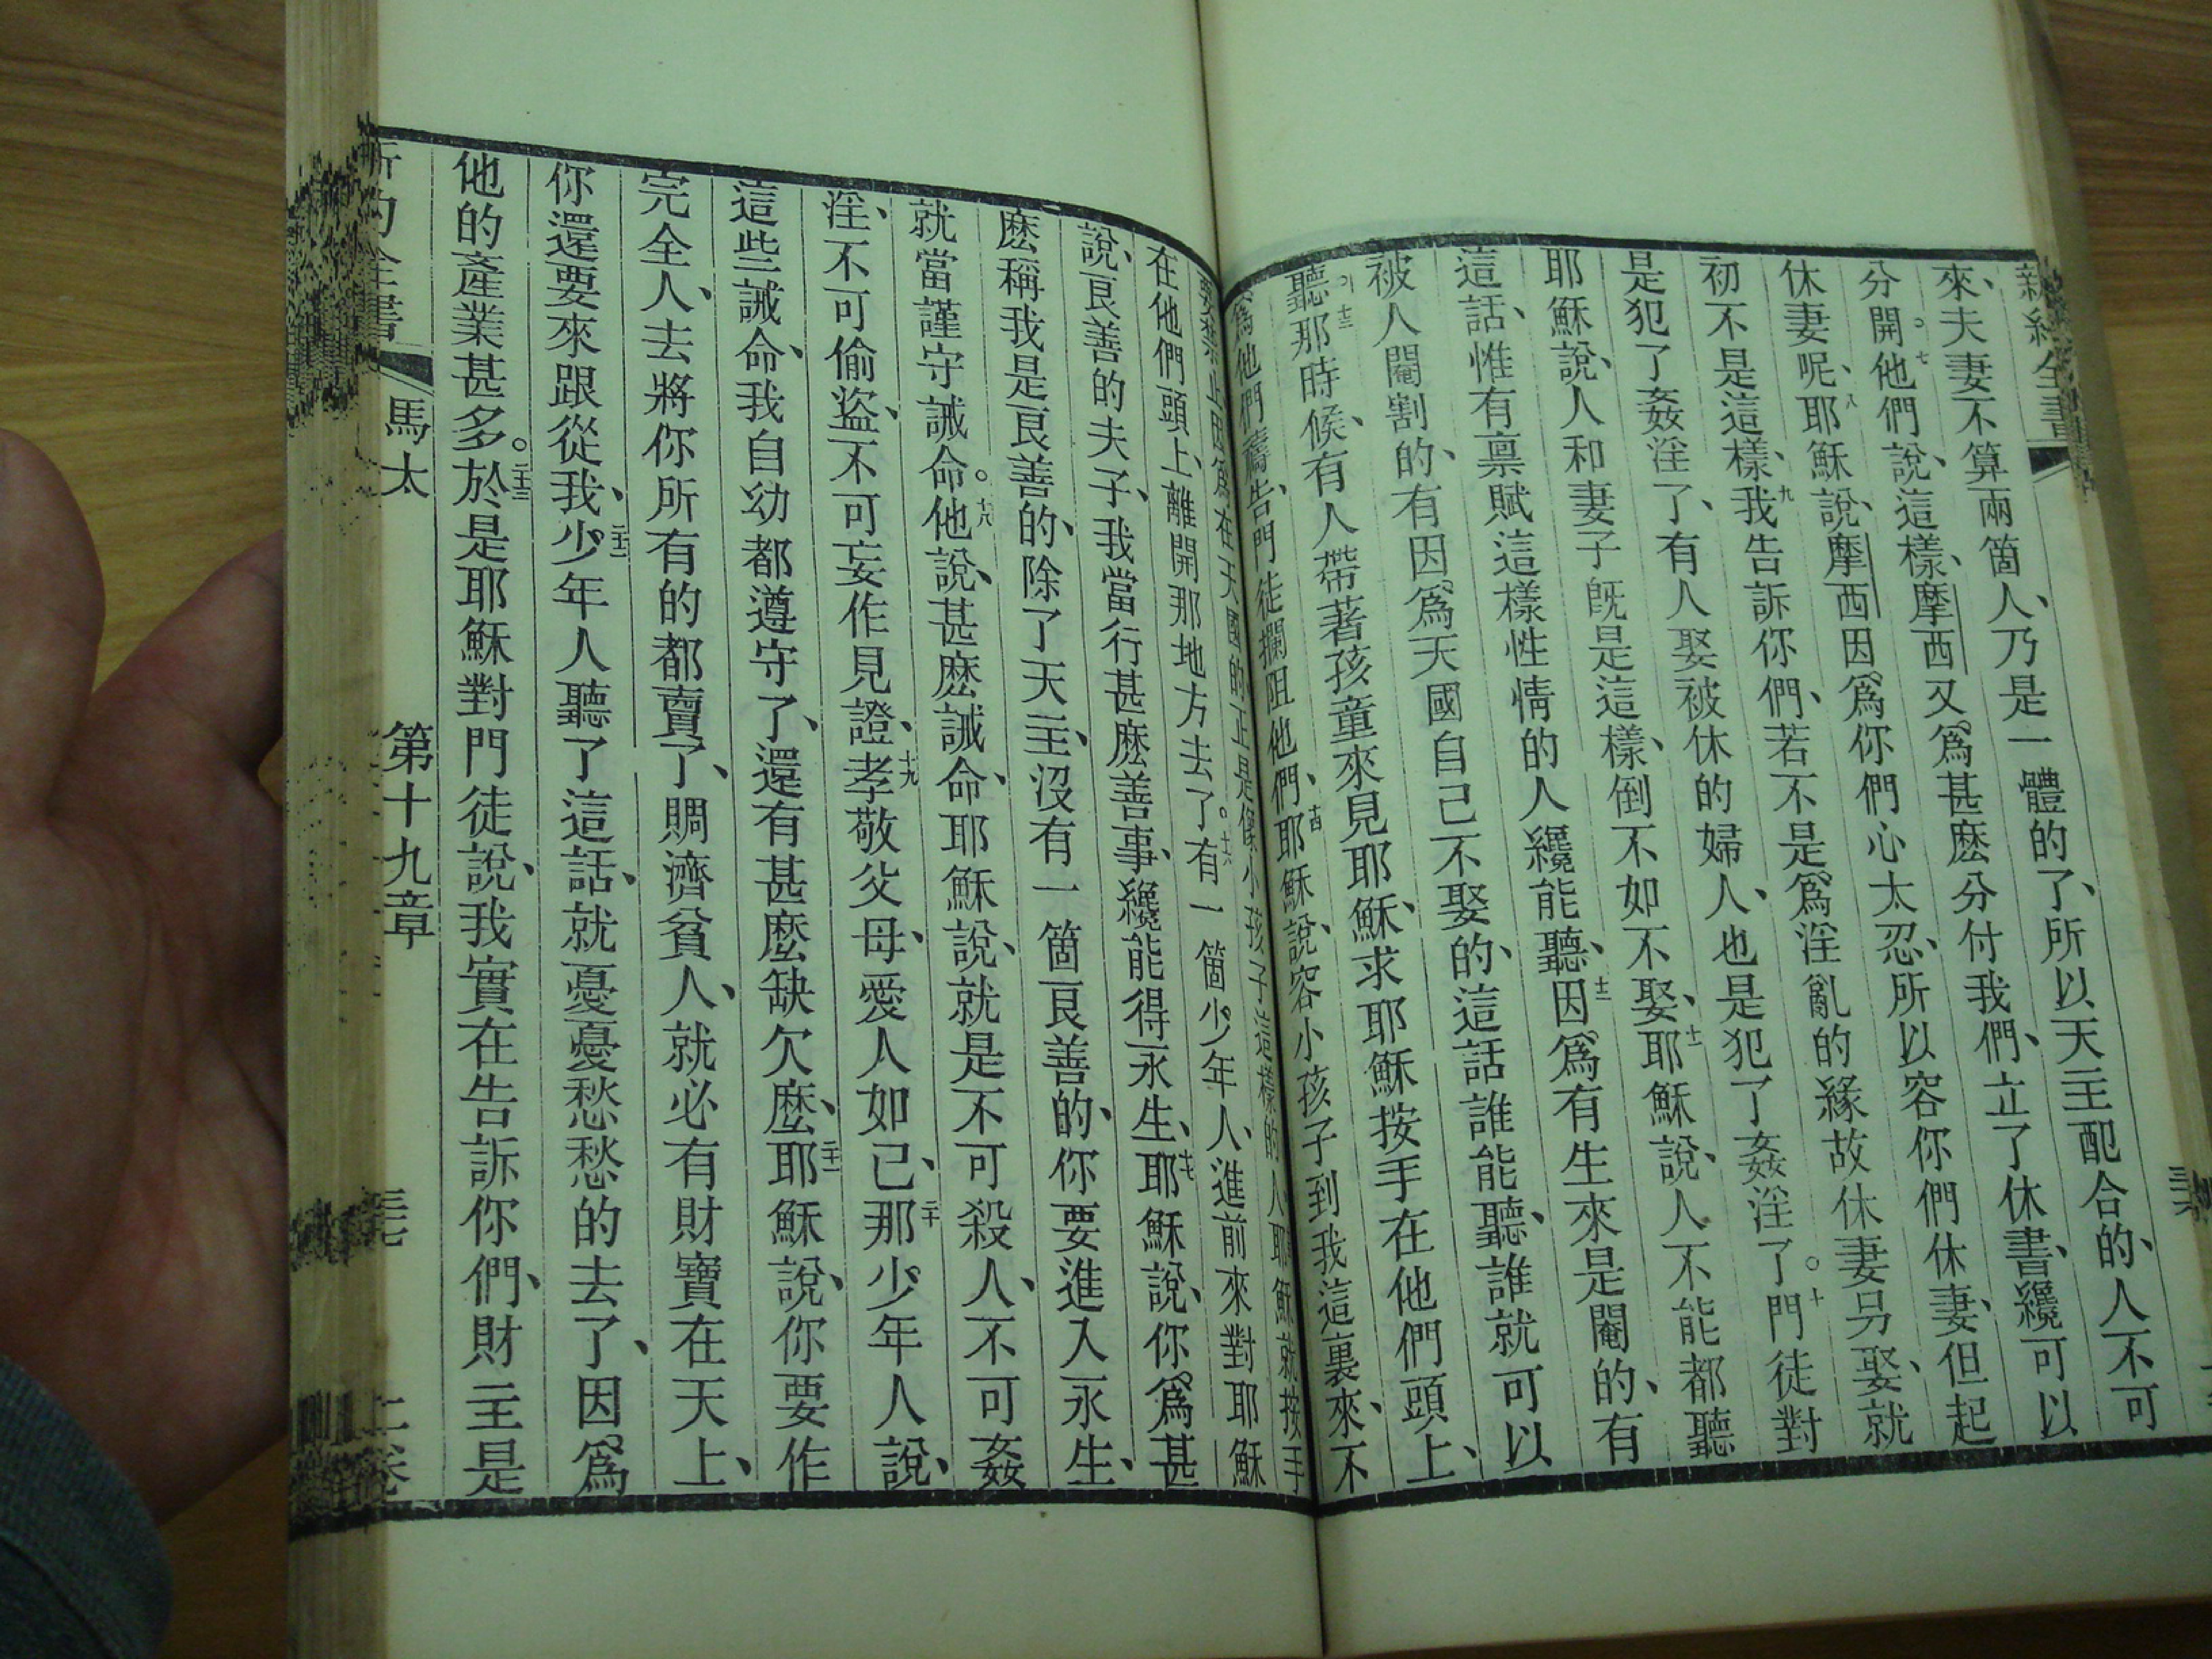 新約全書
來、夫妻不算兩箇人、乃是一體的了、所以天主配合的、人不可
分開。七他們說、這樣、摩西又爲甚麽分付我們、立了休書、纔可以
休妻呢、八耶穌說、摩西因爲你們心太忍、所以容你們休妻、但起
初不是這樣、九我告訴你們、若不是爲淫亂的緣故休妻另娶、就
是犯了姦淫了、有人娶被休的婦人、也是犯了姦淫了。十門徒對
耶穌說、人和妻子旣是這樣、倒不如不娶、十一耶穌說、人不能都聽
這話、惟有稟賦這樣性情的人纔能聽、十二因爲有生來是閹的、有
被人閹割的、有因爲天國自己不娶的、這話誰能聽、誰就可以
聽。十三那時候、有人帶著孩童來見耶穌、求耶穌按手在他們頭上、
爲他們禱告、門徒攔阻他們、十四耶穌說、容小孩子到我這裏來、不
要禁止因爲在天國的正是像小孩子這樣的人耶穌就按手
在他們頭上、離開那地方去了。十六有一箇少年人、進前來對耶穌
說、良善的夫子、我當行甚麽善事、纔能得永生、十七耶穌說、你爲甚
麽稱我是良善的、除了天主、沒有一箇良善的、你要進入永生、
就當謹守誡命。十八他說、甚麽誡命、耶穌說、就是不可殺人、不可姦
淫、不可偷盜、不可妄作見證、十九孝敬父母、愛人如己、二十那少年人說、
這些誡命、我自幼都遵守了、還有甚麽缺欠麽、二十一耶穌說、你要作
完全人、去將你所有的都賣了、賙濟貧人、就必有財寶在天上、
你還要來跟從我、二十二少年人聽了這話、就憂憂愁愁的去了、因爲
他的產業甚多。二十三於是耶穌對門徒說、我實在告訴你們、財主是
新約全書 馬太 第十九章 三七 上卷